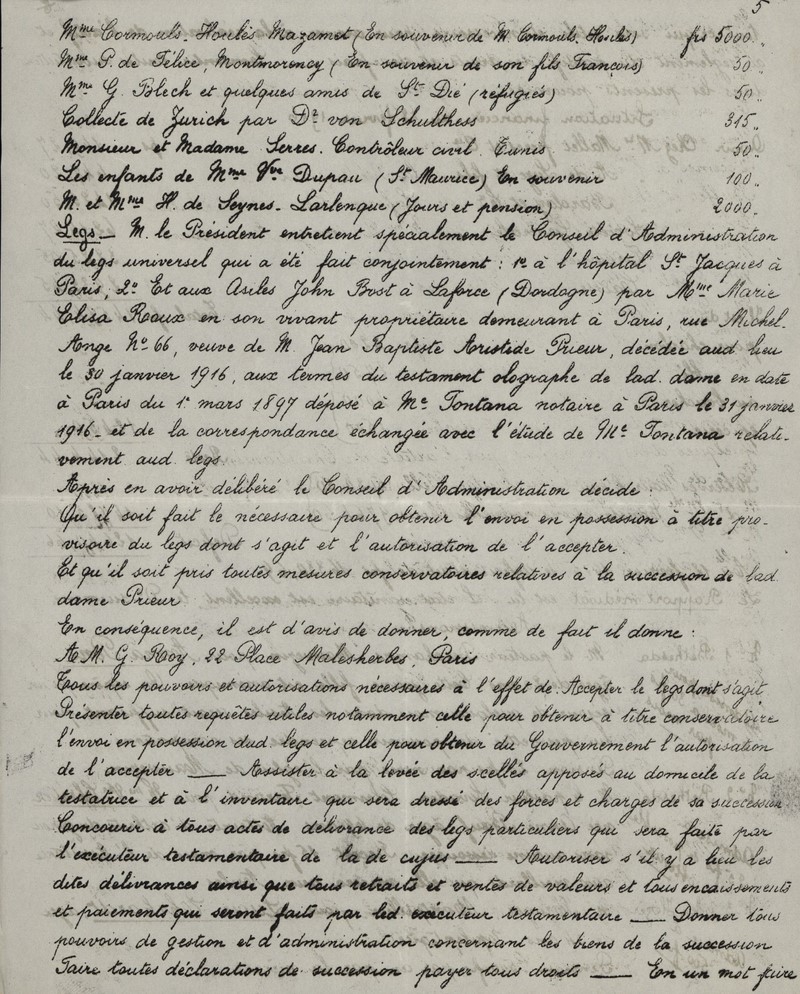 5
Mme Cormouls-Houlès Mazamet (En souvenir de M. Cormouls. Houlès) frs 5000 "
Mme P. de Félice, Montmorency (En souvenir de son fils François) 50 "
Mme G. Blech et quelques amis de St Dié (réfugiés) 50 "
Collecte de Zurich par Dr von Schulthess 315 "
Monsieur et Madame Serres. Contrôleur civil. Tunis 50 "
Les enfants de Mme Vve Dupau (St Maurice) En souvenir 100 "
M. et Mme H. de Seynes-Larlenque (Jours et pension) 2000 "
Legs. — M. le Président entretient spécialement le Conseil d'Administration
du legs universel qui a été fait conjointement : 1º à l'hôpital St Jacques à
Paris, 2º Et aux Asiles John Bost à Laforce (Dordogne) par Mme Marie
Elisa Roux en son vivant propriétaire demeurant à Paris, rue Michel-
Ange Nº 66, veuve de M. Jean Baptiste Aristide Prieur, décédée aud. lieu
le 30 janvier 1916, aux termes du testament olographe de lad. dame en date
à Paris du 1er mars 1897 déposé à Me Fontana notaire à Paris le 31 janvier
1916 - et de la correspondance échangée avec l'étude de Me Fontana relati-
vement aud. legs.
Après en avoir délibéré le Conseil d'Administration décide :
Qu'il soit fait le nécessaire pour obtenir l'envoi en possession à titre pro-
visoire du legs dont s'agit et l'autorisation de l'accepter.
Et qu'il soit pris toutes mesures conservatoires relatives à la succession de lad.
dame Prieur
En conséquence, il est d'avis de donner, comme de fait il donne :
A M. G. Roy, 22 Place Malesherbes, Paris
Tous les pouvoirs et autorisations nécessaires à l'effet de. Accepter le legs dont s'agit
Présenter toutes requêtes utiles notamment celle pour obtenir à titre conservatoire
l'envoi en possession dud. legs et celle pour obtenir du Gouvernement l'autorisation
de l'accepter — Assister à la levée des scellés apposés au domicile de la
testatrice et à l'inventaire qui sera dressé des forces et charges de sa succession
Concourir à tous actes de délivrance des legs particuliers qui sera faite par
l'exécuteur testamentaire de la de cujus — Autoriser s'il y a lieu les
dites délivrances ainsi que tous retraits et ventes de valeurs et tous encaissements
et paiements qui seront faits par led. exécuteur testamentaire — Donner tous
pouvoirs de gestion et d'administration concernant les biens de la succession
Faire toutes déclarations de succession payer tous droits — En un mot faire